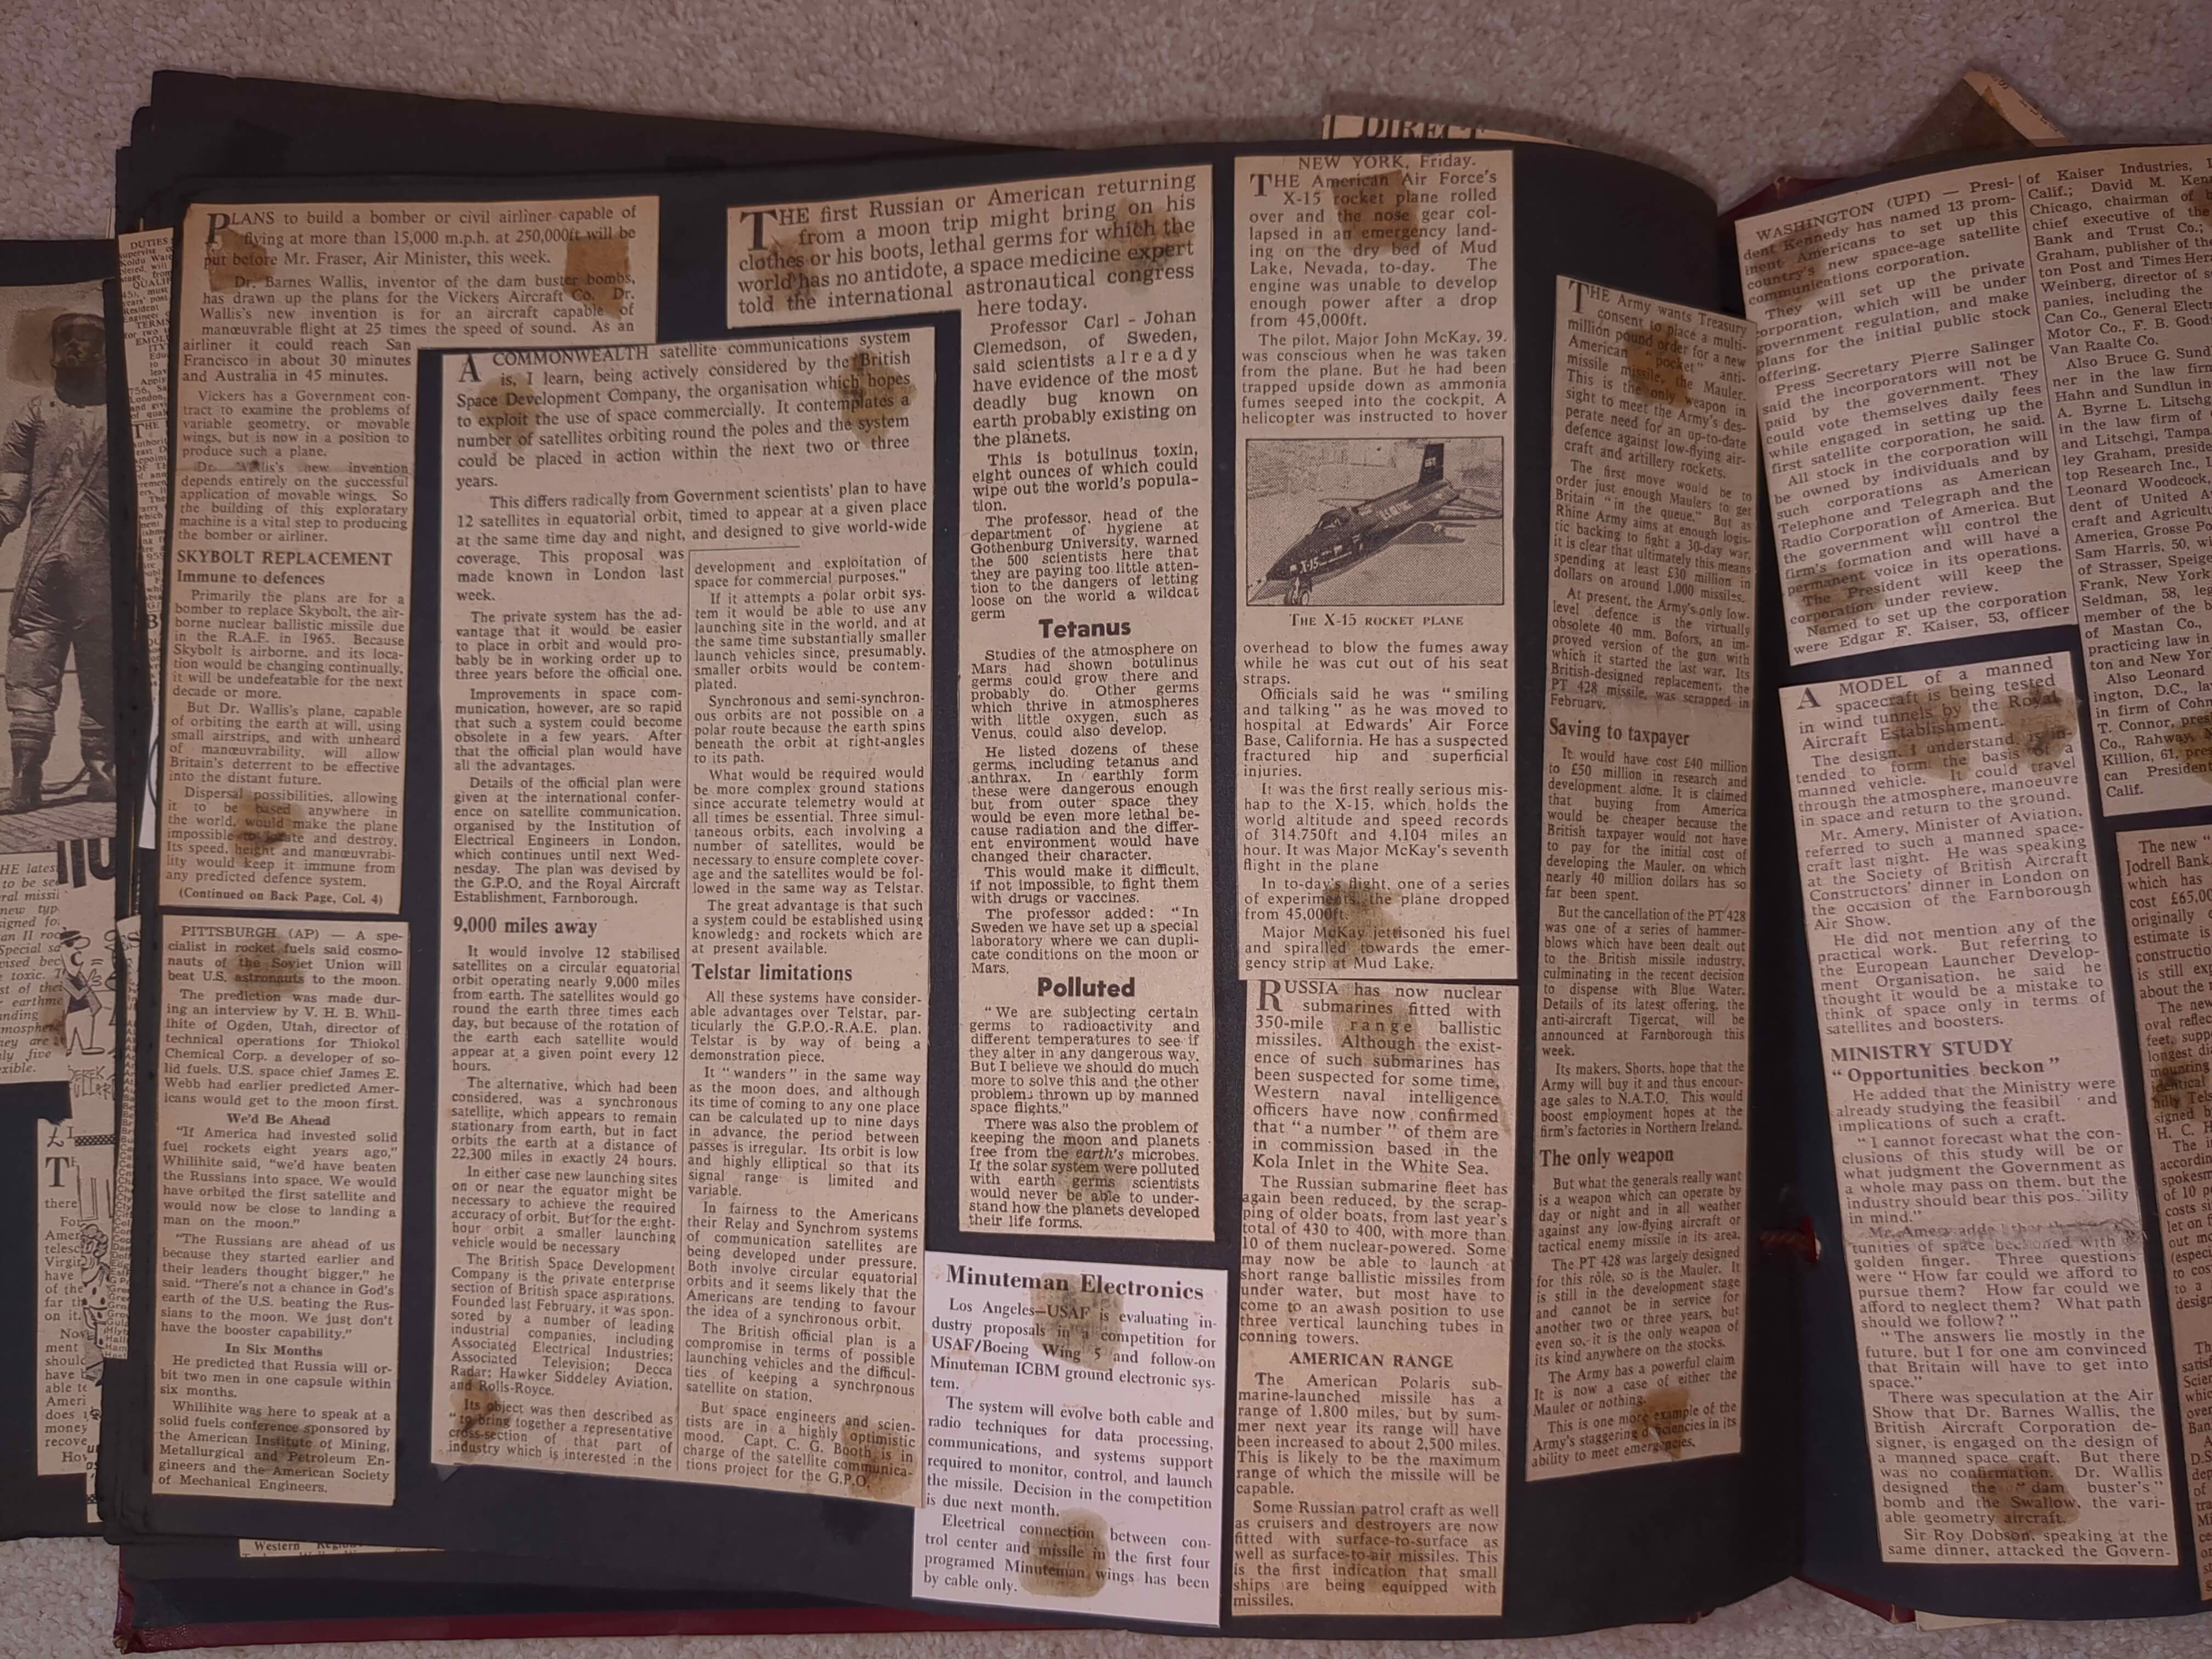 PLANS to build a bomber or civil airliner capable of
flying at more than 15,000 m.p.h. at 250,000ft will be
put before Mr. Fraser, Air Minister, this week.
Dr. Barnes Wallis, inventor of the dam buster bombs,
has drawn up the plans for the Vickers Aircraft Co. Dr.
Wallis's new invention is for an aircraft capable of
manœuvrable flight at 25 times the speed of sound. As an
airliner it could reach San
Francisco in about 30 minutes
and Australia in 45 minutes.
Vickers has a Government con-
tract to examine the problems of
variable geometry, or movable
wings, but is now in a position to
produce such a plane.
Dr. Wallis's new invention
depends entirely on the successful
application of movable wings. So
the building of this exploratary
machine is a vital step to producing
the bomber or airliner.
SKYBOLT REPLACEMENT
Immune to defences
Primarily the plans are for a
bomber to replace Skybolt, the air-
borne nuclear ballistic missile due
in the R.A.F. in 1965. Because
Skybolt is airborne, and its loca-
tion would be changing continually,
it will be undefeatable for the next
decade or more.
But Dr. Wallis's plane, capable
of orbiting the earth at will, using
small airstrips, and with unheard
of manœuvrability, will allow
Britain's deterrent to be effective
into the distant future.
Dispersal possibilities, allowing
it to be based anywhere in
the world, would make the plane
impossible to locate and destroy.
Its speed, height and manœuvrabi-
lity would keep it immune from
any predicted defence system.
(Continued on Back Page, Col. 4)
PITTSBURGH (AP) — A spe-
cialist in rocket fuels said cosmo-
nauts of the Soviet Union will
beat U.S. astronauts to the moon.
The prediction was made dur-
ing an interview by V. H. B. Whil-
ihite of Ogden, Utah, director of
technical operations for Thiokol
Chemical Corp. a developer of so-
lid fuels. U.S. space chief James E.
Webb had earlier predicted Amer-
icans would get to the moon first.
We'd Be Ahead
"If America had invested solid
fuel rockets eight years ago,"
Whilihite said, "we'd have beaten
the Russians into space. We would
have orbited the first satellite and
would now be close to landing a
man on the moon."
"The Russians are ahead of us
because they started earlier and
their leaders thought bigger," he
said. "There's not a chance in God's
earth of the U.S. beating the Rus-
sians to the moon. We just don't
have the booster capability."
In Six Months
He predicted that Russia will or-
bit two men in one capsule within
six months.
Whilihite was here to speak at a
solid fuels conference sponsored by
the American Institute of Mining,
Metallurgical and Petroleum En-
gineers and the American Society
of Mechanical Engineers.
A COMMONWEALTH satellite communications system
is, I learn, being actively considered by the British
Space Development Company, the organisation which hopes
to exploit the use of space commercially. It contemplates a
number of satellites orbiting round the poles and the system
could be placed in action within the next two or three
years.
This differs radically from Government scientists' plan to have
12 satellites in equatorial orbit, timed to appear at a given place
at the same time day and night, and designed to give world-wide
coverage. This proposal was
made known in London last
week.
The private system has the ad-
vantage that it would be easier
to place in orbit and would pro-
bably be in working order up to
three years before the official one.
Improvements in space com-
munication, however, are so rapid
that such a system could become
obsolete in a few years. After
that the official plan would have
all the advantages.
Details of the official plan were
given at the international confer-
ence on satellite communication,
organised by the Institution of
Electrical Engineers in London,
which continues until next Wed-
nesday. The plan was devised by
the G.P.O. and the Royal Aircraft
Establishment, Farnborough.
9,000 miles away
It would involve 12 stabilised
satellites on a circular equatorial
orbit operating nearly 9,000 miles
from earth. The satellites would go
round the earth three times each
day, but because of the rotation of
the earth each satellite would
appear at a given point every 12
hours.
The alternative, which had been
considered, was a synchronous
satellite, which appears to remain
stationary from earth, but in fact
orbits the earth at a distance of
22,300 miles in exactly 24 hours.
In either case new launching sites
on or near the equator might be
necessary to achieve the required
accuracy of orbit. But for the eight-
hour orbit a smaller launching
vehicle would be necessary
The British Space Development
Company is the private enterprise
section of British space aspirations.
Founded last February, it was spon-
sored by a number of leading
industrial companies, including
Associated Electrical Industries;
Associated Television; Decca
Radar; Hawker Siddeley Aviation,
and Rolls-Royce.
Its object was then described as
"to bring together a representative
cross-section of that part of
industry which is interested in the
development and exploitation of
space for commercial purposes."
If it attempts a polar orbit sys-
tem it would be able to use any
launching site in the world, and at
the same time substantially smaller
launch vehicles since, presumably,
smaller orbits would be contem-
plated.
Synchronous and semi-synchron-
ous orbits are not possible on a
polar route because the earth spins
beneath the orbit at right-angles
to its path.
What would be required would
be more complex ground stations
since accurate telemetry would at
all times be essential. Three simul-
taneous orbits, each involving a
number of satellites, would be
necessary to ensure complete cover-
age and the satellites would be fol-
lowed in the same way as Telstar.
The great advantage is that such
a system could be established using
knowledge and rockets which are
at present available.
Telstar limitations
All these systems have consider-
able advantages over Telstar, par-
ticularly the G.P.O.-R.A.E. plan.
Telstar is by way of being a
demonstration piece.
It "wanders" in the same way
as the moon does, and although
its time of coming to any one place
can be calculated up to nine days
in advance, the period between
passes is irregular. Its orbit is low
and highly elliptical so that its
signal range is limited and
variable.
In fairness to the Americans
their Relay and Synchrom systems
of communication satellites are
being developed under pressure.
Both involve circular equatorial
orbits and it seems likely that the
Americans are tending to favour
the idea of a synchronous orbit.
The British official plan is a
compromise in terms of possible
launching vehicles and the difficul-
ties of keeping a synchronous
satellite on station.
But space engineers and scien-
tists are in a highly optimistic
mood. Capt. C. G. Booth is in
charge of the satellite communica-
tions project for the G.P.O.
THE first Russian or American returning
from a moon trip might bring on his
clothes or his boots, lethal germs for which the
world has no antidote, a space medicine expert
told the international astronautical congress
here today.
Professor Carl-Johan
Clemedson, of Sweden,
said scientists already
have evidence of the most
deadly bug known on
earth probably existing on
the planets.
This is botulinus toxin,
eight ounces of which could
wipe out the world's popula-
tion.
The professor, head of the
department of hygiene at
Gothenburg University, warned
the 500 scientists here that
they are paying too little atten-
tion to the dangers of letting
loose on the world a wildcat
germ
Tetanus
Studies of the atmosphere on
Mars had shown botulinus
germs could grow there and
probably do. Other germs
which thrive in atmospheres
with little oxygen, such as
Venus, could also develop.
He listed dozens of these
germs, including tetanus and
anthrax. In earthly form
these were dangerous enough
but from outer space they
would be even more lethal be-
cause radiation and the differ-
ent environment would have
changed their character.
This would make it difficult,
if not impossible, to fight them
with drugs or vaccines.
The professor added: "In
Sweden we have set up a special
laboratory where we can dupli-
cate conditions on the moon or
Mars.
Polluted
"We are subjecting certain
germs to radioactivity and
different temperatures to see if
they alter in any dangerous way.
But I believe we should do much
more to solve this and the other
problems thrown up by manned
space flights."
There was also the problem of
keeping the moon and planets
free from the earth's microbes.
If the solar system were polluted
with earth germs scientists
would never be able to under-
stand how the planets developed
their life forms.
Minuteman Electronics
Los Angeles—USAF is evaluating in-
dustry proposals in a competition for
USAF/Boeing Wing 5 and follow-on
Minuteman ICBM ground electronic sys-
tem.
The system will evolve both cable and
radio techniques for data processing,
communications, and systems support
required to monitor, control, and launch
the missile. Decision in the competition
is due next month.
Electrical connection between con-
trol center and missile in the first four
programed Minuteman wings has been
by cable only.
DIRECT
NEW YORK, Friday.
THE American Air Force's
X-15 rocket plane rolled
over and the nose gear col-
lapsed in an emergency land-
ing on the dry bed of Mud
Lake, Nevada, to-day. The
engine was unable to develop
enough power after a drop
from 45,000ft.
The pilot, Major John McKay, 39.
was conscious when he was taken
from the plane. But he had been
trapped upside down as ammonia
fumes seeped into the cockpit. A
helicopter was instructed to hover
X-15
THE X-15 ROCKET PLANE
overhead to blow the fumes away
while he was cut out of his seat
straps.
Officials said he was "smiling
and talking" as he was moved to
hospital at Edwards' Air Force
Base, California. He has a suspected
fractured hip and superficial
injuries.
It was the first really serious mis-
hap to the X-15, which holds the
world altitude and speed records
of 314,750ft and 4,104 miles an
hour. It was Major McKay's seventh
flight in the plane
In to-day's flight, one of a series
of experiments, the plane dropped
from 45,000ft.
Major McKay jettisoned his fuel
and spiralled towards the emer-
gency strip at Mud Lake.
RUSSIA has now nuclear
submarines fitted with
350-mile range ballistic
missiles. Although the exist-
ence of such submarines has
been suspected for some time,
Western naval intelligence
officers have now confirmed
that "a number" of them are
in commission based in the
Kola Inlet in the White Sea.
The Russian submarine fleet has
again been reduced, by the scrap-
ping of older boats, from last year's
total of 430 to 400, with more than
10 of them nuclear-powered. Some
may now be able to launch at
short range ballistic missiles from
under water, but most have to
come to an awash position to use
three vertical launching tubes in
conning towers.
AMERICAN RANGE
The American Polaris sub-
marine-launched missile has a
range of 1,800 miles, but by sum-
mer next year its range will have
been increased to about 2,500 miles.
This is likely to be the maximum
range of which the missile will be
capable.
Some Russian patrol craft as well
as cruisers and destroyers are now
fitted with surface-to-surface as
well as surface-to-air missiles. This
is the first indication that small
ships are being equipped with
missiles.
THE Army wants Treasury
consent to place a multi-
million pound order for a new
American "pocket" anti-
missile missile, the Mauler.
This is the only weapon in
sight to meet the Army's des-
perate need for an up-to-date
defence against low-flying air-
craft and artillery rockets.
The first move would be to
order just enough Maulers to get
Britain "in the queue." But as
Rhine Army aims at enough logis-
tic backing to fight a 30-day war,
it is clear that ultimately this means
spending at least £30 million in
dollars on around 1,000 missiles.
At present, the Army's only low-
level defence is the virtually
obsolete 40 mm. Bofors, an im-
proved version of the gun with
which it started the last war. Its
British-designed replacement, the
PT 428 missile, was scrapped in
February.
Saving to taxpayer
It would have cost £40 million
to £50 million in research and
development alone. It is claimed
that buying from America
would be cheaper because the
British taxpayer would not have
to pay for the initial cost of
developing the Mauler, on which
nearly 40 million dollars has so
far been spent.
But the cancellation of the PT 428
was one of a series of hammer-
blows which have been dealt out
to the British missile industry,
culminating in the recent decision
to dispense with Blue Water.
Details of its latest offering, the
anti-aircraft Tigercat, will be
announced at Farnborough this
week.
Its makers, Shorts, hope that the
Army will buy it and thus encour-
age sales to N.A.T.O. This would
boost employment hopes at the
firm's factories in Northern Ireland.
The only weapon
But what the generals really want
is a weapon which can operate by
day or night and in all weather
against any low-flying aircraft or
tactical enemy missile in its area.
The PT 428 was largely designed
for this rôle, so is the Mauler. It
is still in the development stage
and cannot be in service for
another two or three years, but
even so, it is the only weapon of
its kind anywhere on the stocks.
The Army has a powerful claim
It is now a case of either the
Mauler or nothing.
This is one more example of the
Army's staggering deficiencies in its
ability to meet emergencies.
WASHINGTON (UPI) — Presi-
dent Kennedy has named 13 prom-
inent Americans to set up this
country's new space-age satellite
communications corporation.
They will set up the private
corporation, which will be under
government regulation, and make
plans for the initial public stock
offering.
Press Secretary Pierre Salinger
said the incorporators will not be
paid by the government. They
could vote themselves daily fees
while engaged in setting up the
first satellite corporation, he said.
All stock in the corporation will
be owned by individuals and by
such corporations as American
Telephone and Telegraph and the
Radio Corporation of America. But
the government will control the
firm's formation and will have a
permanent voice in its operations.
The President will keep the
corporation under review.
Named to set up the corporation
were Edgar F. Kaiser, 53, officer
of Kaiser Industries,
Calif.; David M.
Chicago, chairman of
chief executive of the
Bank and Trust Co.;
Graham, publisher of the
ton Post and Times
Weinberg, director of
panies, including the
Can Co., General
Motor Co., F. B.
Van Raalte Co.
Also Bruce G.
ner in the law firm
Hahn and Sundlun in
A. Byrne L.
in the law firm of
and Litschgi, Tampa
ley Graham,
top Research Inc.,
Leonard Woodcock,
dent of United
craft and
America, Grosse
Sam Harris, 50,
of Strasser,
Frank, New York
Seldman, 58,
member of the
of Mastan Co.,
practicing law in
ton and New
Also Leonard
ington, D.C.,
in firm of
T. Connor,
Co., Rahway,
Killion, 61,
can President
Calif.
A MODEL of a manned
spacecraft is being tested
in wind tunnels by the Royal
Aircraft Establishment.
The design, I understand, is in-
tended to form the basis of a
manned vehicle. It could travel
through the atmosphere, manoeuvre
in space and return to the ground.
Mr. Amery, Minister of Aviation,
referred to such a manned space-
craft last night. He was speaking
at the Society of British Aircraft
Constructors' dinner in London on
the occasion of the Farnborough
Air Show.
He did not mention any of the
practical work. But referring to
the European Launcher Develop-
ment Organisation, he said he
thought it would be a mistake to
think of space only in terms of
satellites and boosters.
MINISTRY STUDY
"Opportunities beckon"
He added that the Ministry were
already studying the and
implications of such a craft.
"I cannot forecast what the con-
clusions of this study will be or
what judgment the Government as
a whole may pass on them, but the
industry should bear this
in mind."
Mr. Amery
tunities of space beckoned with
golden finger. Three questions
were "How far could we afford to
pursue them? How far could we
afford to neglect them? What path
should we follow?"
"The answers lie mostly in the
future, but I for one am convinced
that Britain will have to get into
space."
There was speculation at the Air
Show that Dr. Barnes Wallis, the
British Aircraft Corporation de-
signer, is engaged on the design of
a manned space craft. But there
was no confirmation. Dr. Wallis
designed the "dam buster's"
bomb and the Swallow, the vari-
able geometry aircraft.
Sir Roy Dobson, speaking at the
same dinner, attacked the Govern-
The new
Jodrell Bank
which has
cost £65,00
originally
estimate is
is still
about the